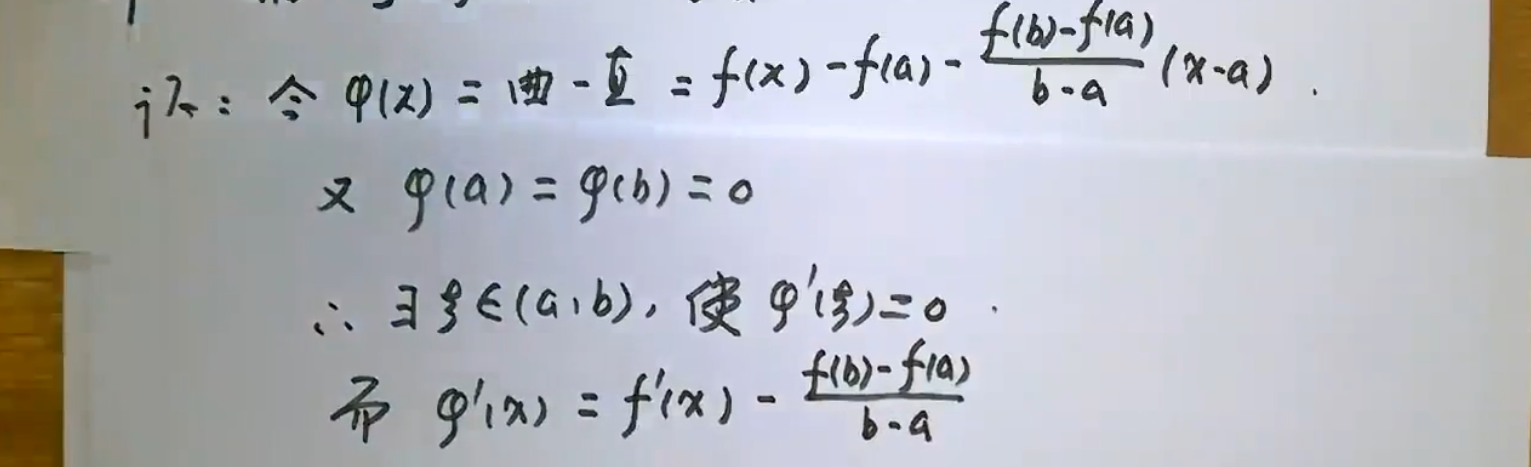 证：令 φ(x) = 曲 - 直 = f(x) - f(a) - \frac{f(b)-f(a)}{b-a} (x-a) .
又 φ(a) = φ(b) = 0
∴ ∃ ξ ∈ (a, b), 使 φ'(ξ) = 0 .
而 φ'(x) = f'(x) - \frac{f(b)-f(a)}{b-a}